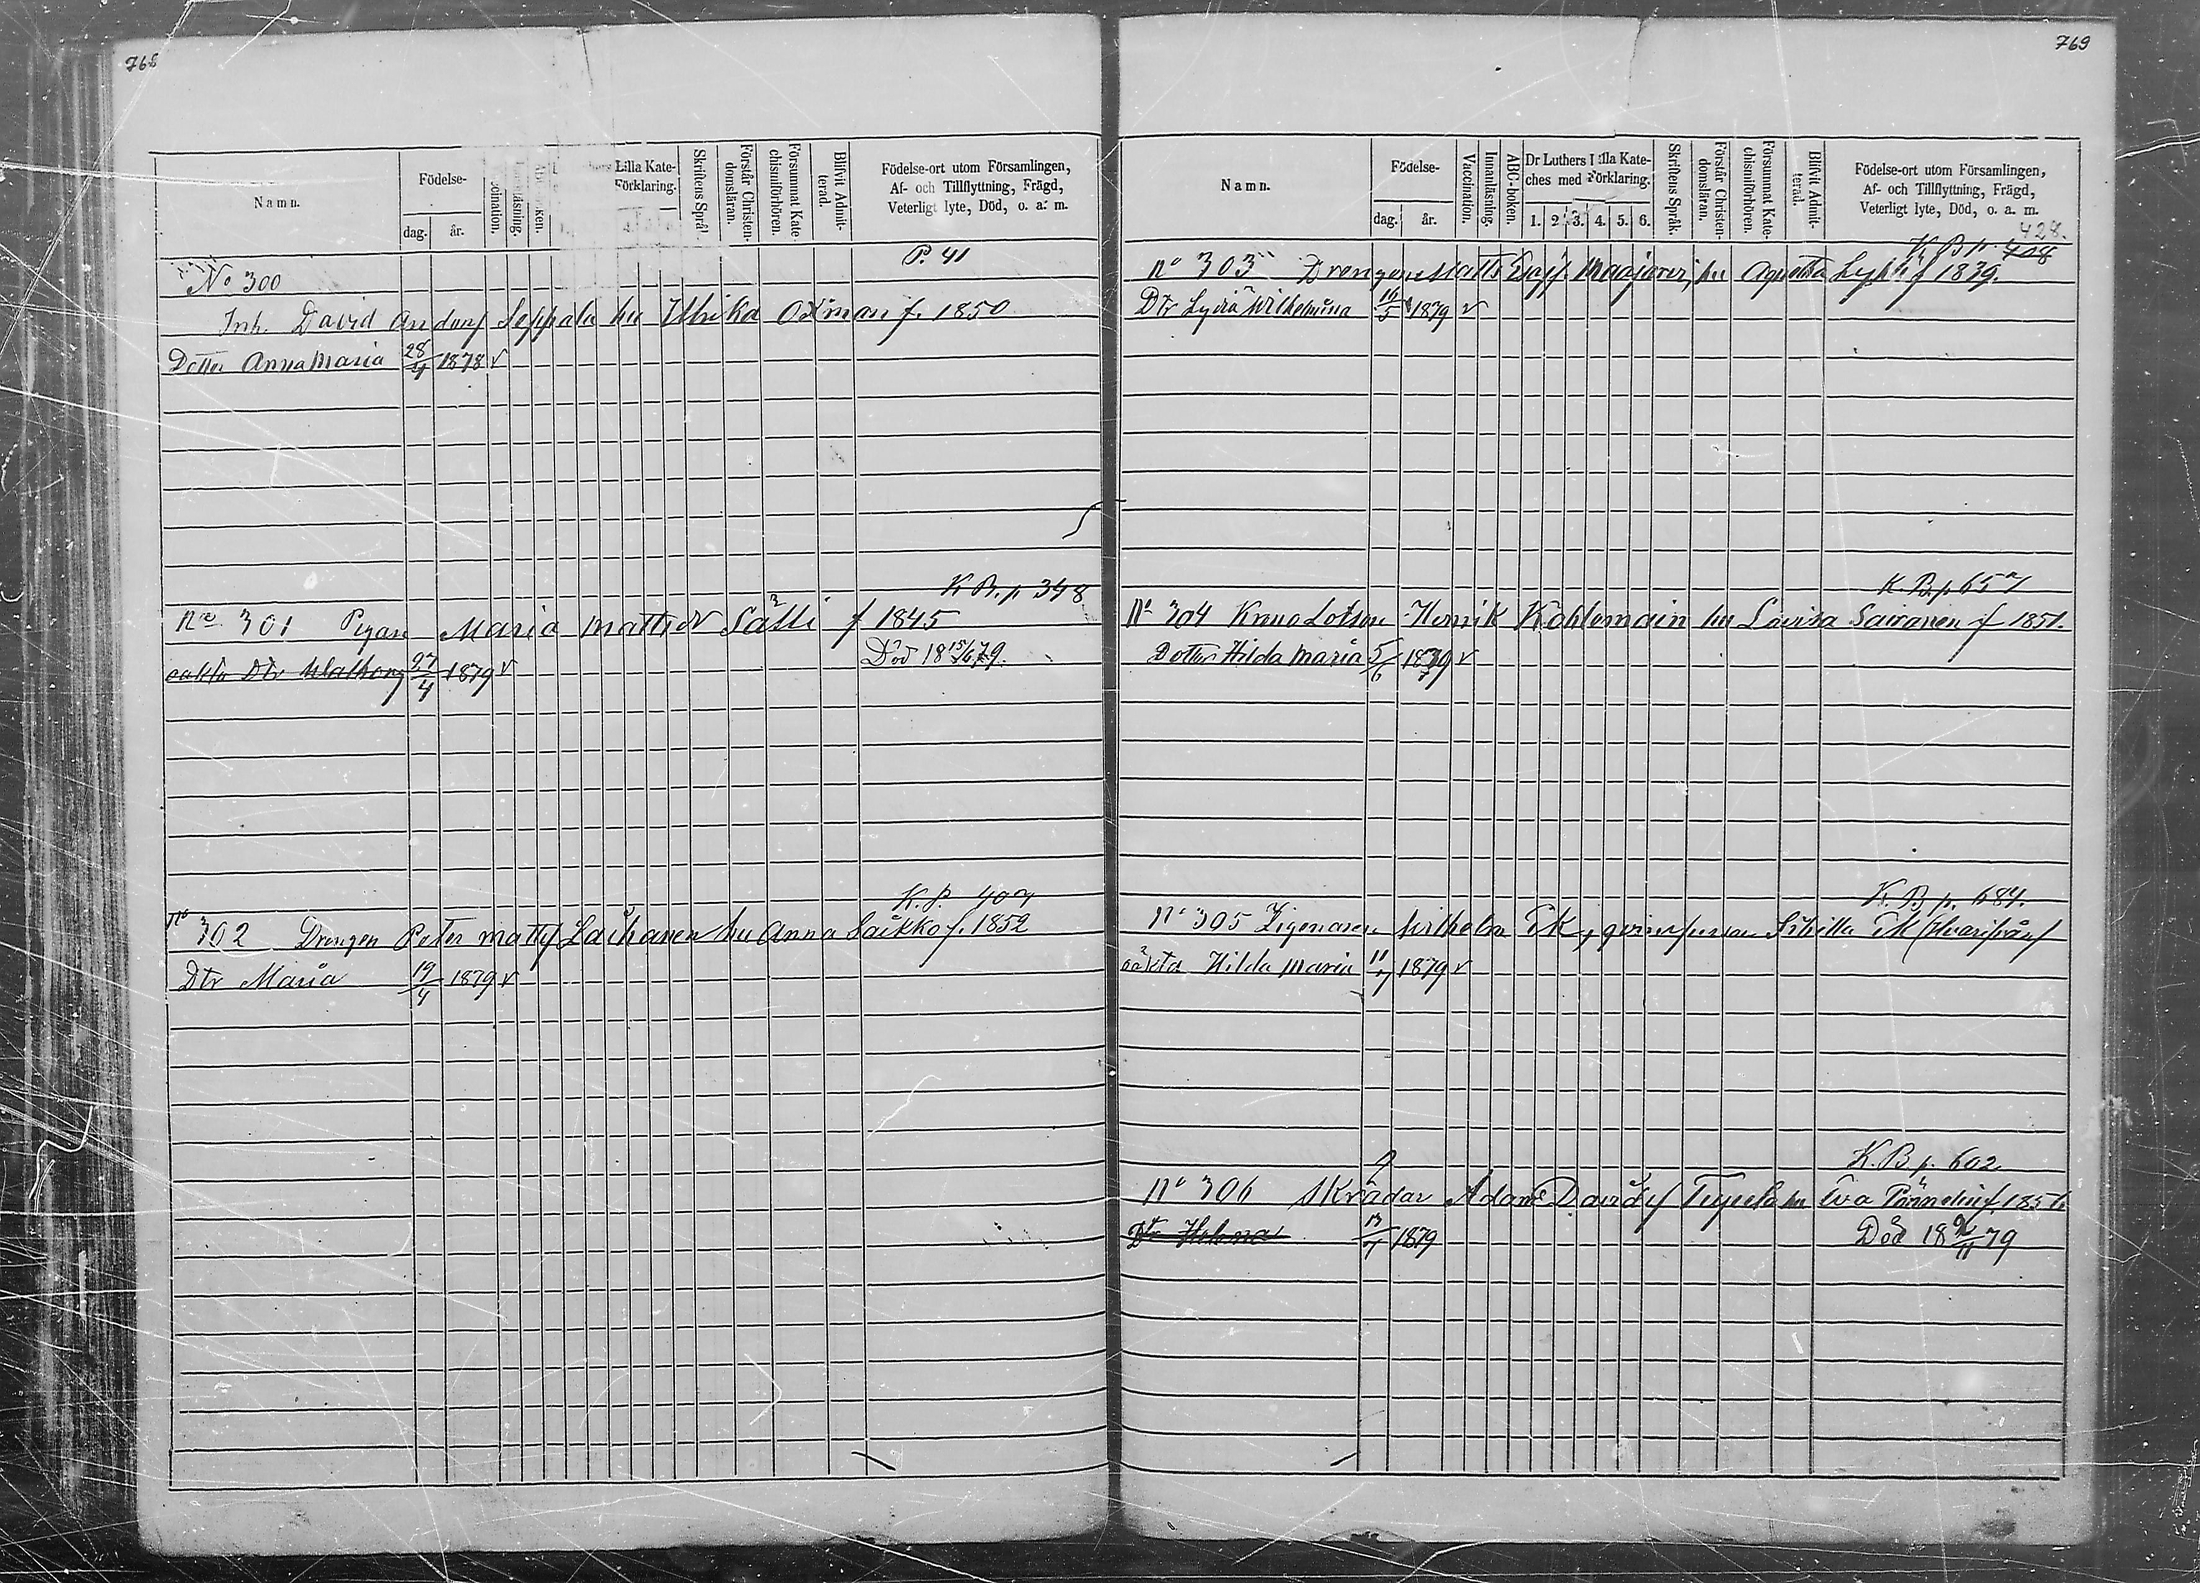 768
Namn.
Födelse-
dag.
år.
Lilla Kate-
Förklaring.
Skriftens Språk.
Förstår Christen-
domsläran.
Försummat Kate-
chismiförhören.
Blifvit Admit-
terad.
Födelse-ort utom Församlingen,
Af- och Tillflyttning, Frägd,
Veterligt lyte, Död, o. a. m.
P. 41
No 300
Inh. David Andersf Seppala hu Ulrika Oxman f. 1850
Dotter Anna Maria 28/4 1878 v
K B. p 348
No 301 Pigan Maria Mattsd Sätti f 1845
oäkta Dtr Walborg 27/4 1879 v Död 18 15/6 79.
K. P. 407
No 302 Drengen Peter Mattsf Laihanen hu Anna Saikko f. 1852
Dtr Maria 19/4 1879 v
769
Namn.
Födelse-
dag.
år.
Vaccination.
Innanläsning.
ABC-boken.
Dr Luthers Lilla Kate-
ches med Förklaring.
1. 2. 3. 4. 5. 6.
Skriftens Språk.
Förstår Christen-
domsläran.
Försummat Kate-
chismiförhören.
Blifvit Admit-
terad.
Födelse-ort utom Församlingen,
Af- och Tillflyttning, Frägd,
Veterligt lyte, Död, o. a. m.
428.
K. B p. 408
No 303 Drengen Matts Maajärvi, hu Agnetha f 1839.
Dtr Lydia Wilhelmina 16/5 1879 v
K. B. p 657
No 304 Krono Lotsen Henrik Kohlemain hu Lovisa Sairanen f 1851.
Dotter Hilda Maria 5/6 1879 v
K. B p. 684.
No 305 Zigenaren Wilhelm
oäkta Hilda Maria 11/7 1879 v
K. B p. 602
No 306 Skrädar Adam Davidsf hu Eva
Dtr Helena 13/7 1879 Död 18 2/11 79